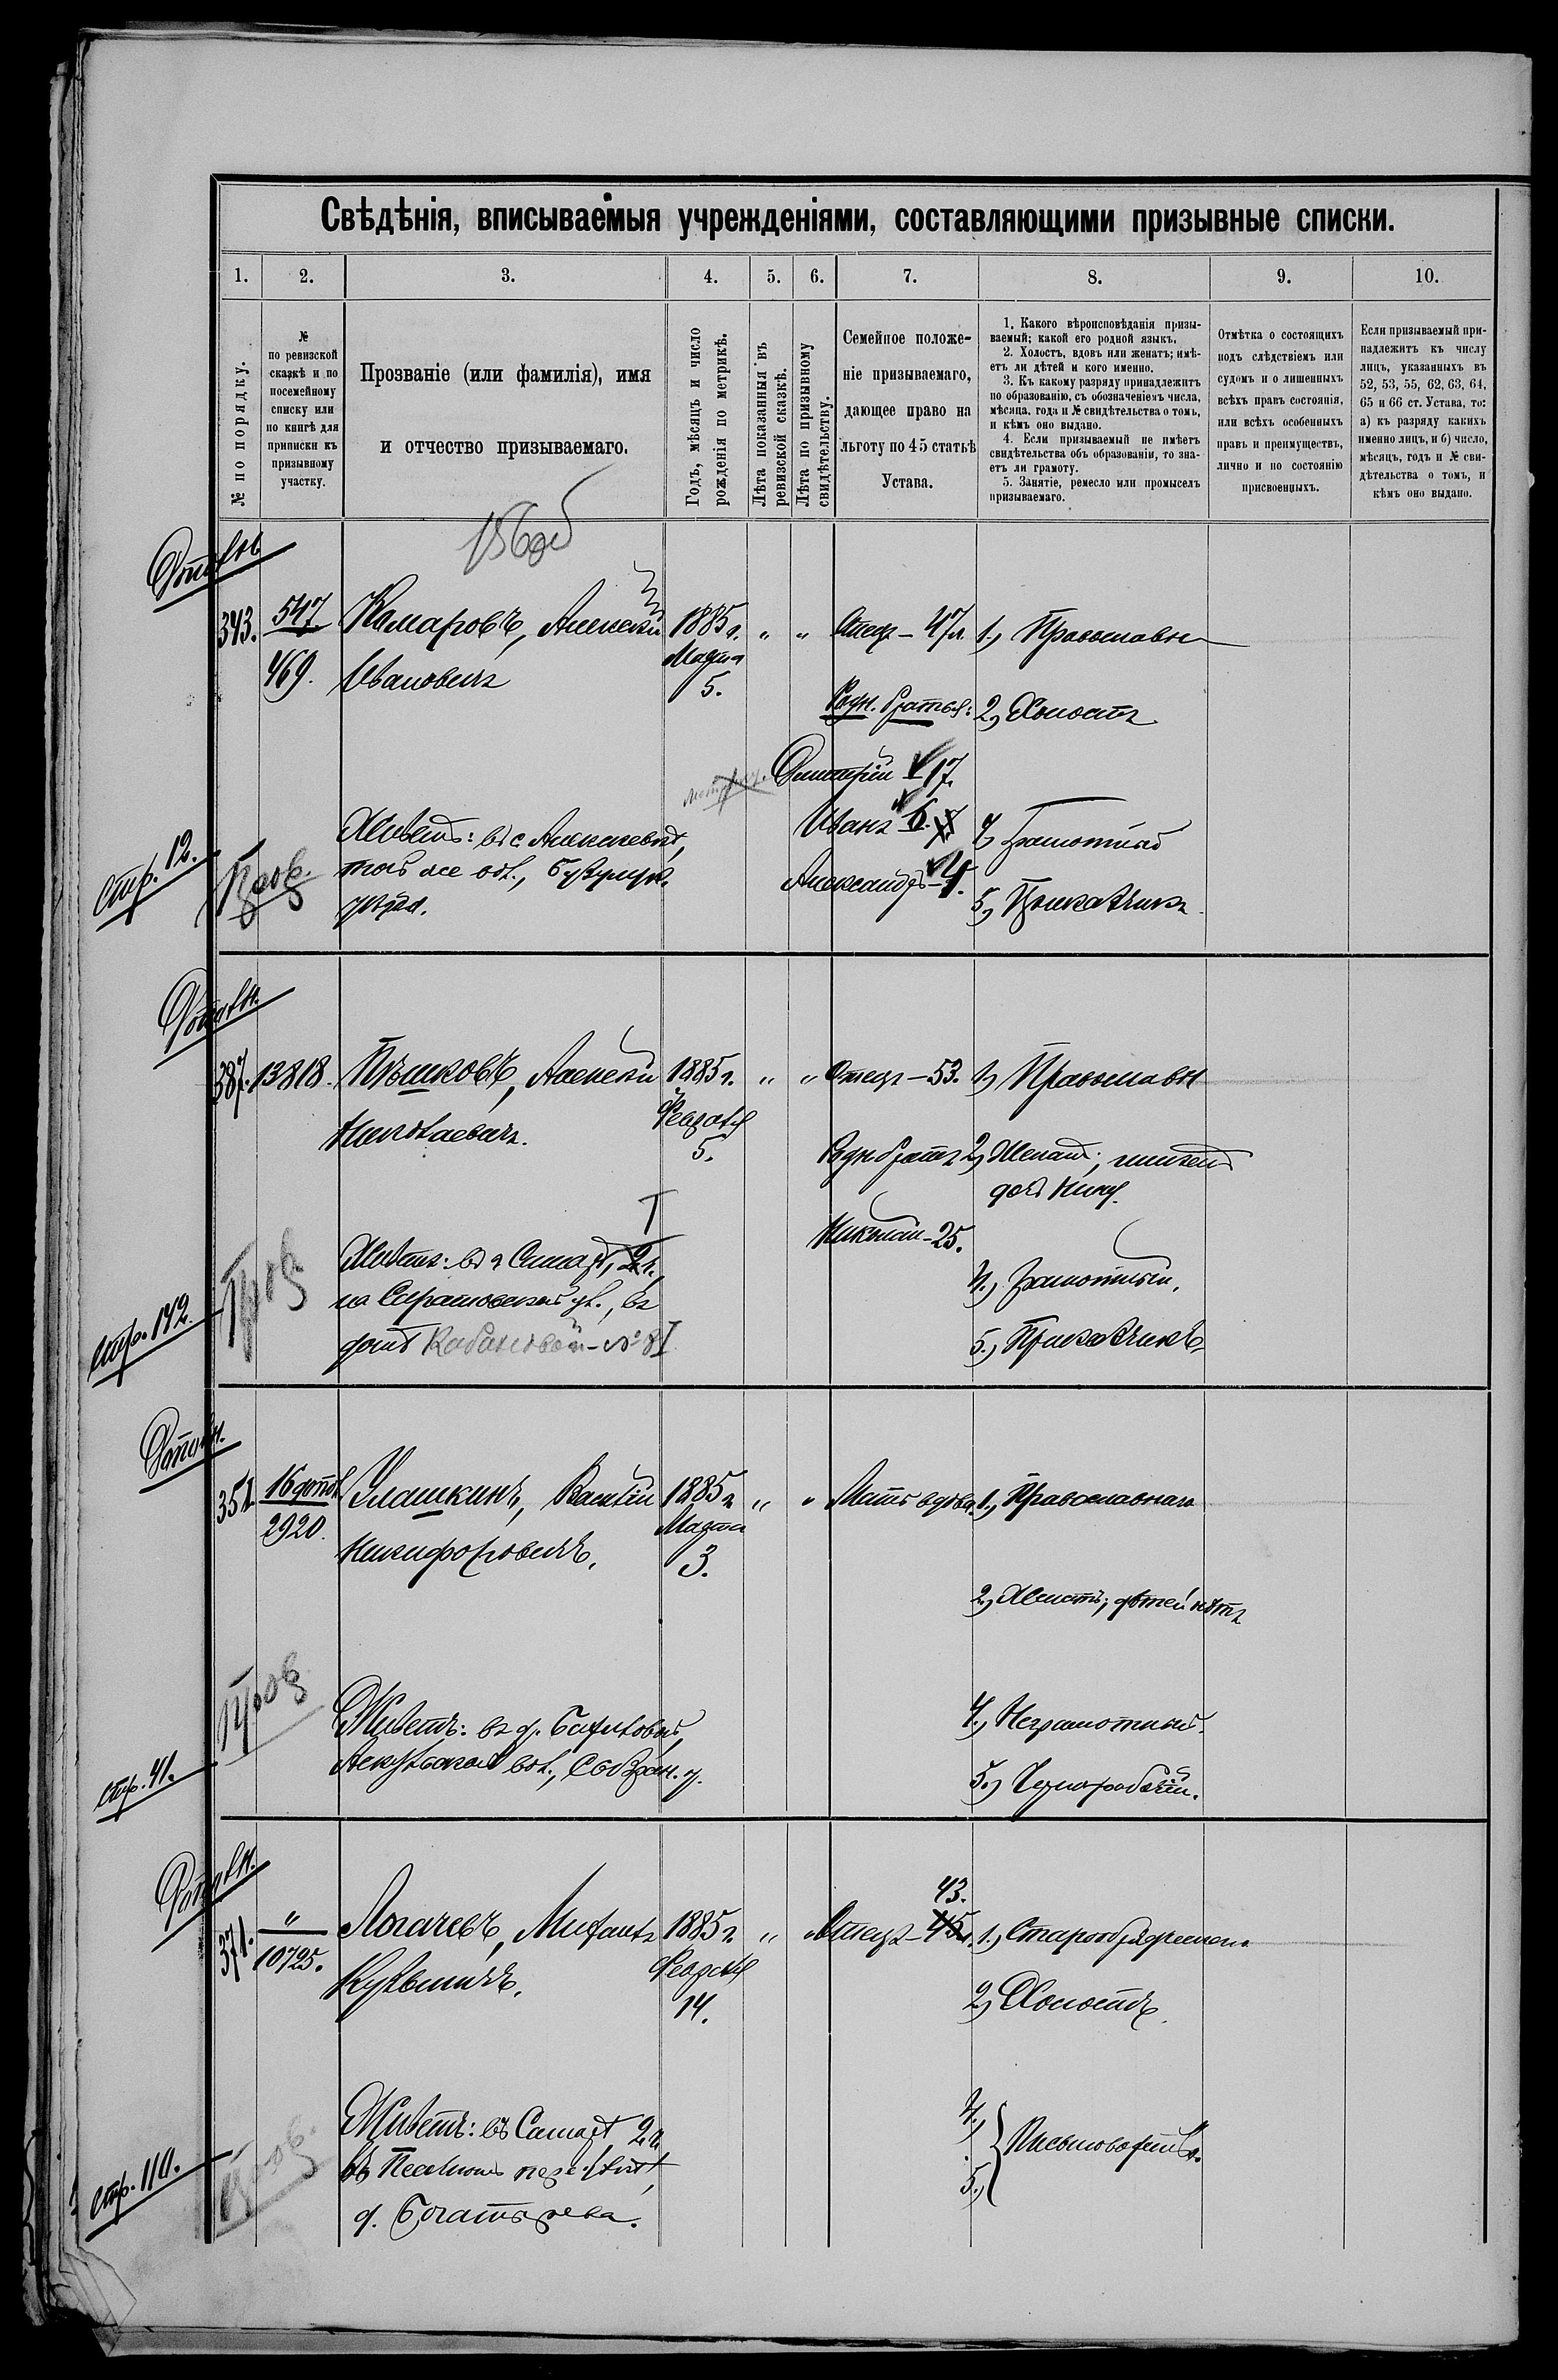 Свѣдѣнія, вписываемыя учрежденіями, составляющими призывные списки.
1. 2. 3. 4. 5. 6. 7. 8. 9. 10.
№ по порядку.
№
по ревизской
сказкѣ и по
посемейному
списку или
по книгѣ для
приписки къ
призывному
участку.
Прозваніе (или фамилія), имя
и отчество призываемаго.
Годъ, мѣсяцъ и число
рожденія по метрикѣ.
Лѣта показанныя въ
ревизской сказкѣ.
Лѣта по призывному
свидѣтельству.
Семейное положе-
ніе призываемаго,
дающее право на
льготу по 45 статьѣ
Устава.
1. Какого вѣроисповѣданія призы-
ваемый; какой его родной языкъ.
2. Холостъ, вдовъ или женатъ; имѣ-
етъ ли дѣтей и кого именно.
3. Къ какому разряду принадлежитъ
по образованію, съ обозначеніемъ числа,
мѣсяца, года и № свидѣтельства о томъ,
и кѣмъ оно выдано.
4. Если призываемый не имѣетъ
свидѣтельства объ образованіи, то зна-
етъ ли грамоту.
5. Занятіе, ремесло или промыселъ
призываемаго.
Отмѣтка о состоящихъ
подъ слѣдствіемъ или
судомъ и о лишенныхъ
всѣхъ правъ состоянія,
или всѣхъ особенныхъ
правъ и преимуществъ,
лично и по состоянію
присвоенныхъ.
Если призываемый при-
надлежитъ къ числу
лицъ, указанныхъ въ
52, 53, 55, 62, 63, 64,
65 и 66 ст. Устава, то:
а) къ разряду какихъ
именно лицъ, и б) число,
мѣсяцъ, годъ и № сви-
дѣтельства о томъ, и
кѣмъ оно выдано.
343. 547 Комаровъ, Алексѣй 1885 г. " " Отецъ - 47 л. 1., Православн
469. Ивановичъ Марта
5.
Родн. братья: 2, Холостъ.
Дмитрій 17.
Живетъ: въ с Алексѣевкѣ, Иванъ 6. 4, Грамотный
той же вол., Бузулук. Александръ - 4.
уѣзд. 5, Приказчикъ
Стр. 12.
387. 13818. Пѣшковъ, Алексѣй 1885 г. " " Отецъ - 53. 1, Православн
Николаевичъ. Февраля
5.
Родн братъ 2, Женатъ; имѣетъ
доч Нину.
Николай - 25.
Живетъ: въ г Самарѣ, 2 ч.,
на Саратовской ул., въ 4., Грамотный.
домѣ - № 81 5., Приказчикъ
Стр. 142.
351 16 Улашкинъ, Василій 1885 г " " Мать вдова. 1., Православнаго
2920. Никифоровичъ. Марта
3.
2., Женатъ; дѣтей нѣтъ
Живетъ: въ д. 4., Неграмотный.
вол., Сызран. у. 5., Чернорабочій.
Стр. 41.
43.
371. " Логачевъ, 1885 г. " Отецъ - 45. 1.,
10725. Кузьмичъ. Февраля
14.
2, Холостъ.
Живетъ: въ Самарѣ 2 ч. 4.,
въ 5., Письмоводит
д. Богатырева.
Стр. 110.